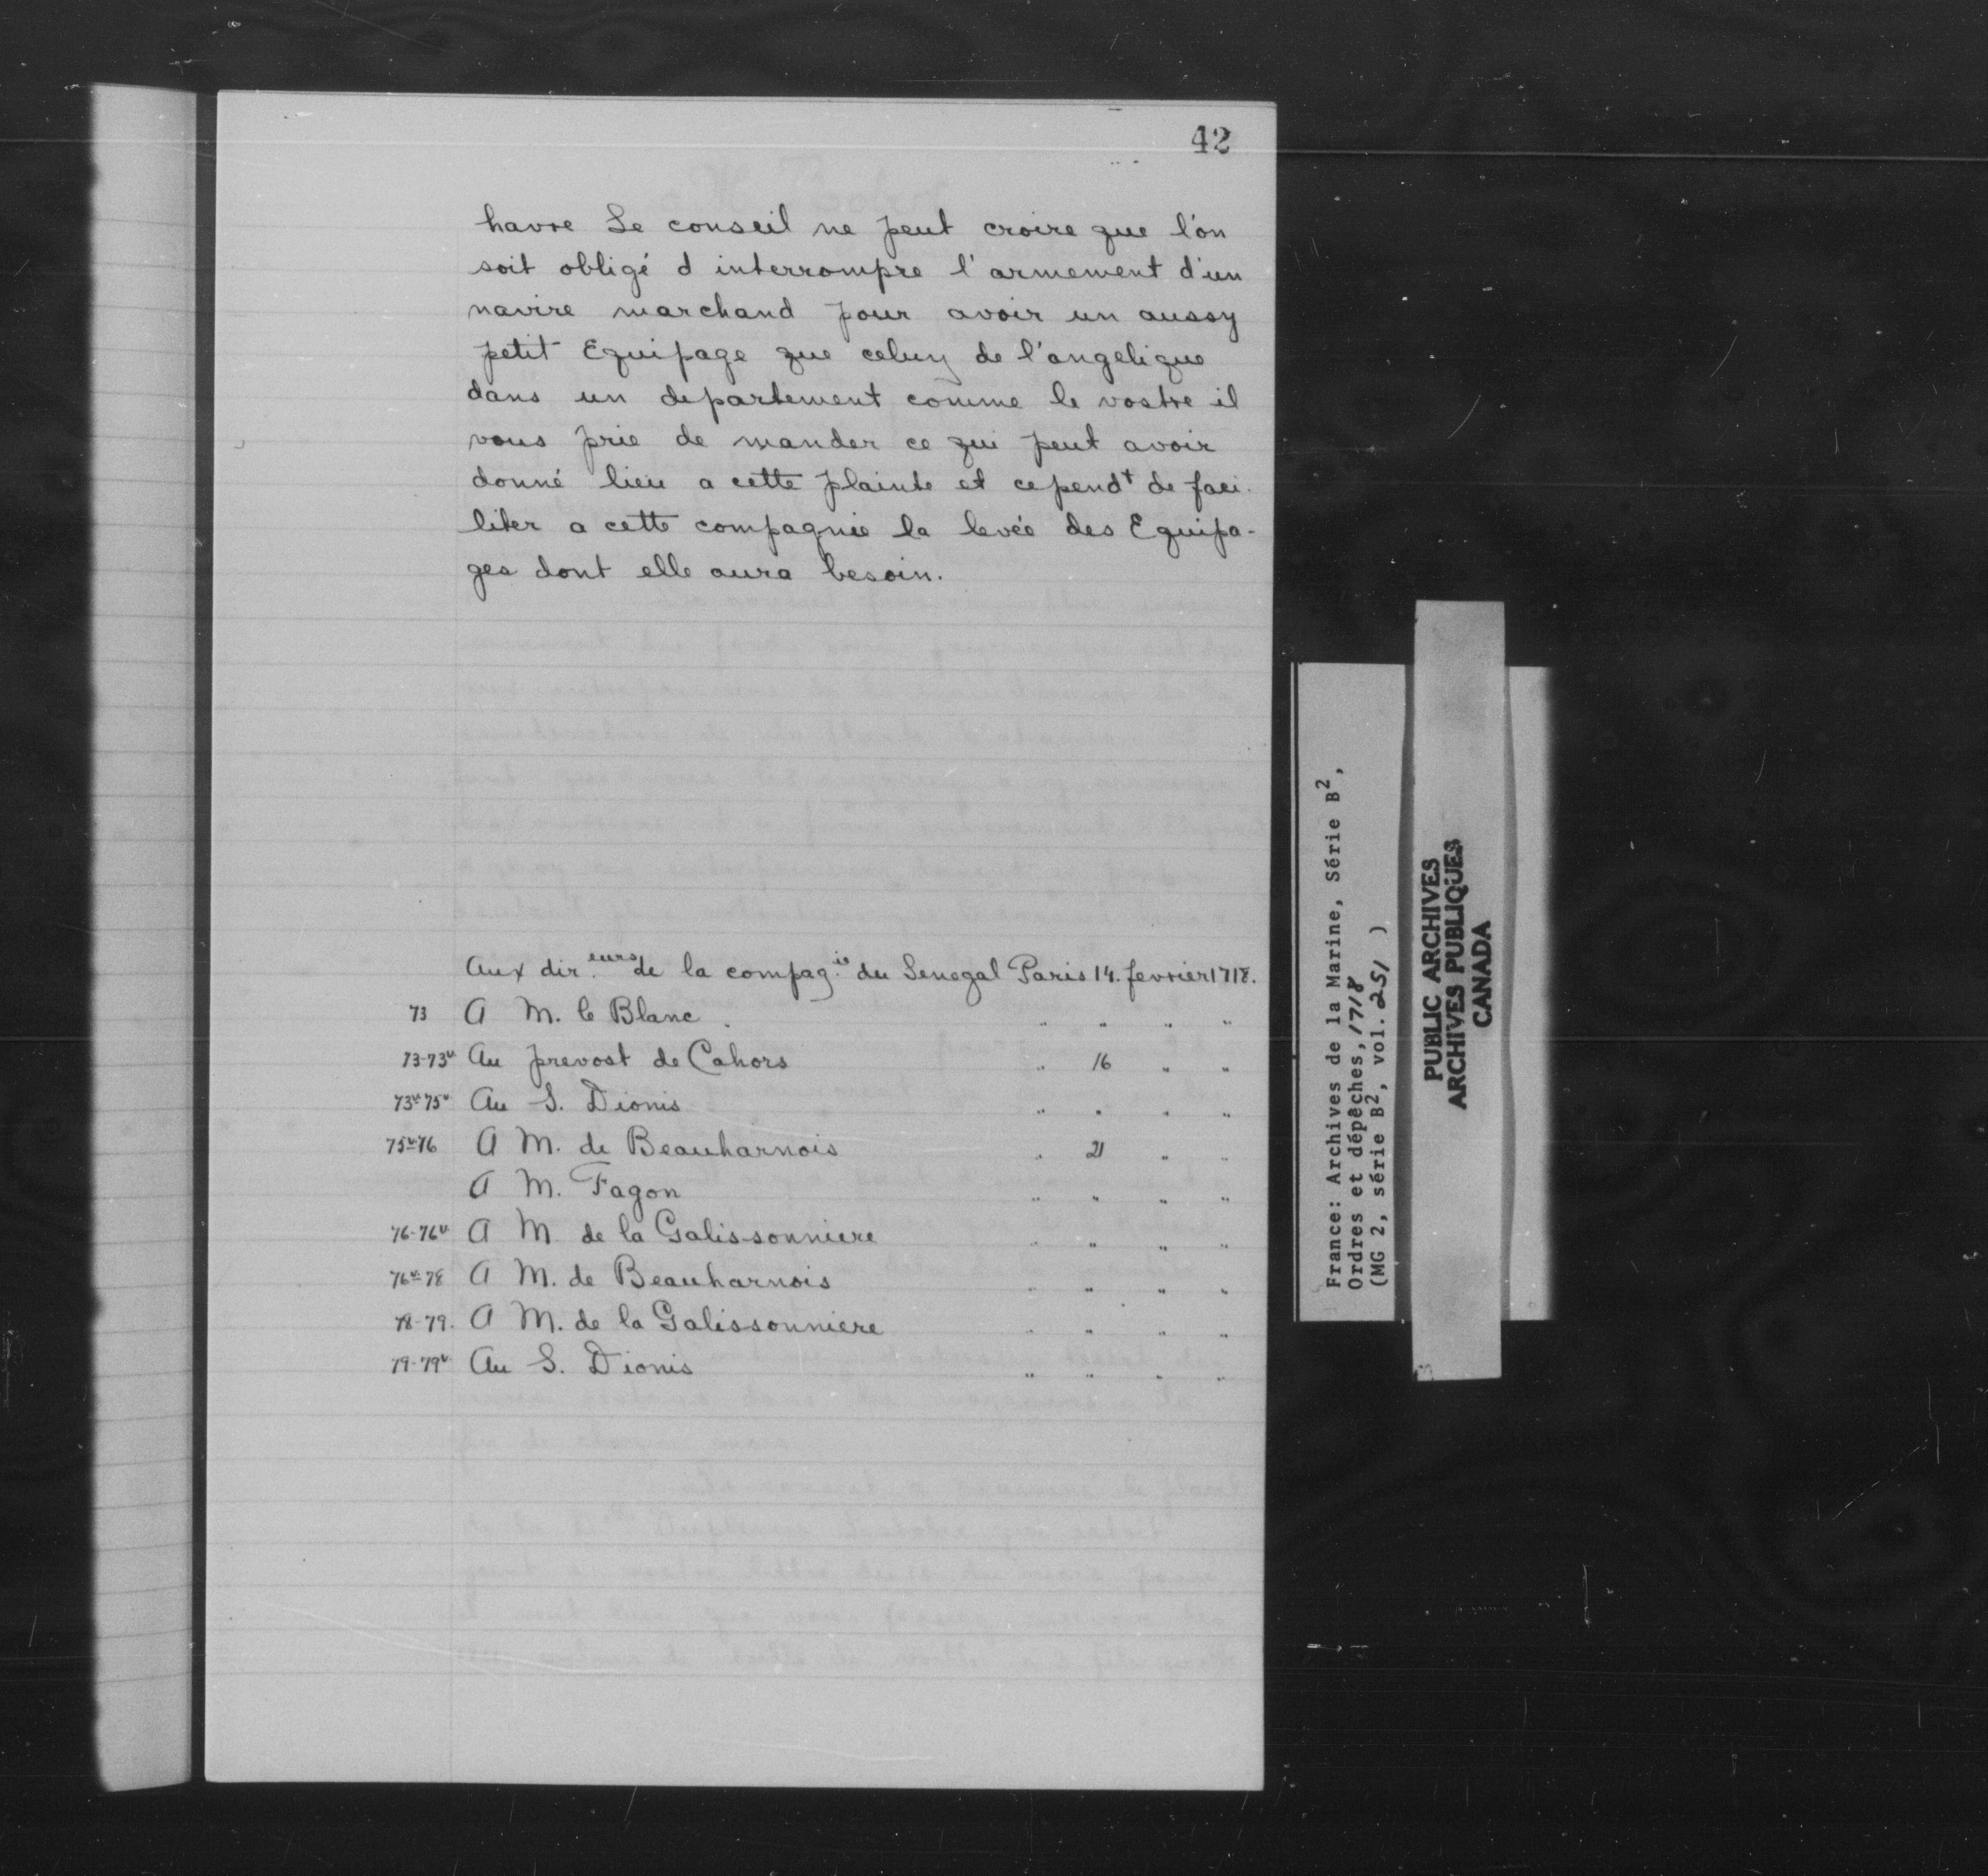 42
havre Le conseil ne peut croire que l'on
soit obligé d interrompre l'armement d'un
navire marchand pour avoir un aussy
petit Equipage que celuy de l'angelique
dans un departement comme le vostre il
vous prie de mander ce qui peut avoir
donné lieu a cette plainte et cepend^t de faci-
liter a cette compagnie la levée des Equipa-
ges dont elle aura besoin.
Aux dir.^eurs de la compag.^ie du Senegal Paris 14. fevrier 1718.
73 A M. le Blanc. " " " "
73-73v Au prevost de Cahors " 16 " "
73v-75v Au S. Dionis " " " "
75v-76 A M. de Beauharnois " 21 " "
A M. Fagon " " " "
76-76v A M de la Galissonniere " " " "
76v-78 A M. de Beauharnois " " " "
78-79. A M. de la Galissonniere " " " "
79-79v Au S. Dionis " " " "
France: Archives de la Marine, Série B²,
Ordres et dépêches, 1718
(MG 2, série B², vol. 251 )
PUBLIC ARCHIVES
ARCHIVES PUBLIQUES
CANADA